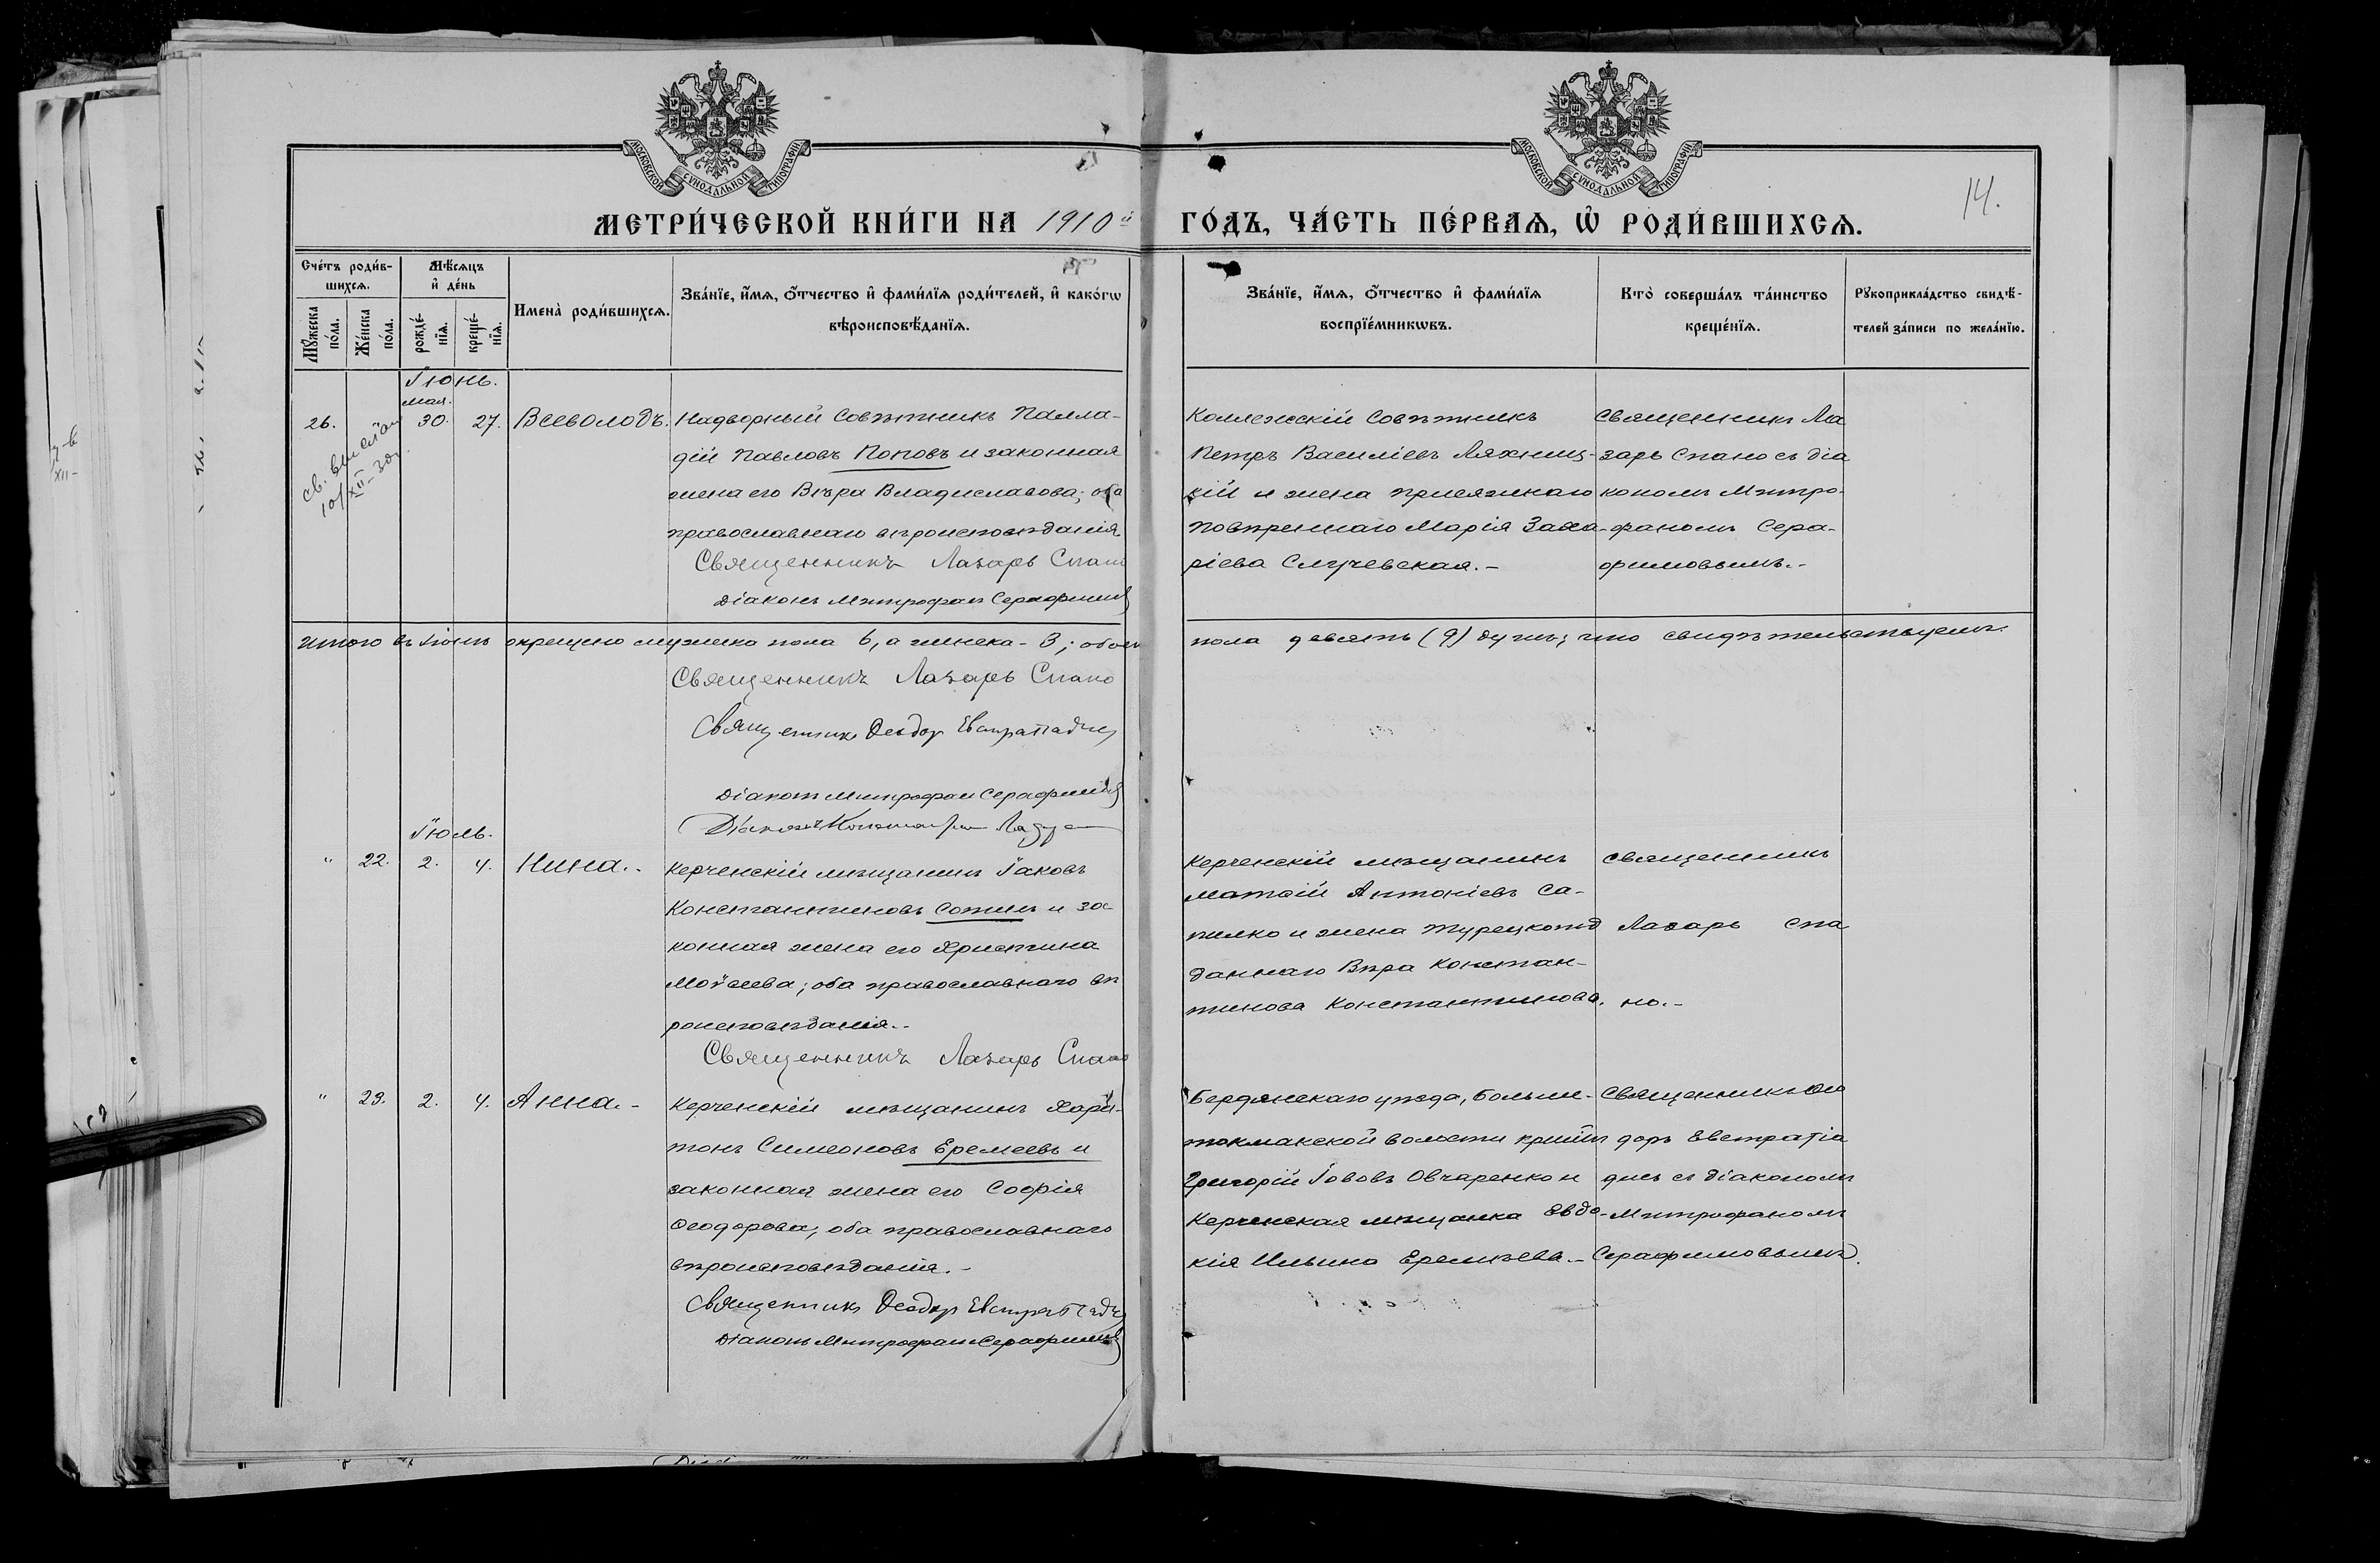 МОСКОВСКОЙ СѴНОДАЛЬНОЙ ТИПОГРАФІИ
МОСКОВСКОЙ СѴНОДАЛЬНОЙ ТИПОГРАФІИ
14.
МЕТРИ́ЧЕСКОЙ КНИ́ГИ НА 1910й ГО́ДЪ, ЧА́СТЬ ПЕ́РВАѦ, Ѡ҆ РОДИ́ВШИХСѦ.
Сче́тъ роди́в-
шихсѧ.
Мꙋ́жеска по́ла.
Же́нска по́ла.
Мѣ́сѧцъ
и҆ де́нь
рожде́-
нїѧ.
креще́-
нїѧ.
Имена̀ роди́вшихсѧ.
Зва́нїе, и҆́мѧ, ѻ҆́тчество и҆ фами́лїѧ роди́телей, и҆ како́гѡ
вѣроисповѣ́данїѧ.
Зва́нїе, и҆́мѧ, ѻ҆́тчество и҆ фами́лїѧ
воспрїе́мникѡвъ.
Кто̀ соверша́лъ та́инство
креще́нїѧ.
Рꙋкоприкла́дство свидѣ́-
телей за́писи по жела́нїю.
Іюнь.
мая.
26. 30. 27. Всеволодъ.
св. выслан
10/XII-30г.
Надворный Совѣтникъ Палла-
дій Павловъ Поповъ и законная
жена его Вѣра Владиславова; оба
православнаго вѣроисповѣданія
Священникъ Лазарь Спано
Діаконъ Митрофан Серафимов
Коллежскій Совѣтникъ
Петръ Василіевъ Ляхниц-
кій и жена присяжнаго
повѣреннаго Марія Заха-
ріева Случевская.-
Священникъ Ла
зарь Спано съ діа
кономъ Митро-
фаномъ Сера-
фимовымъ.-
Итого въ Іюнѣ окрещено мужеска пола 6, а женска - 3; обоего пола девять (9) душъ; что свидѣтельствуемъ.
Священникъ Лазарь Спано
Священникъ Ѳеодор Евстратiадис
Діаконъ Митрофан Серафимов
Діаконъ
Іюль.
" 22. 2. 4. Нина.-
Керченскій мѣщанинъ Іаковъ
Константиновъ Сотиль и за-
конная жена его Христина
Моѵсеева; оба православнаго вѣ
роисповѣданія.-
Священникъ Лазарь Спано
Керченскій мѣщанинъ
Матѳій Антоніевъ Са-
пилко и жена турецкопод
даннаго Вѣра Констан-
тинова Константинова.
священникъ
Лазарь Спа
но.-
" 23. 2. 4. Анна.-
Керченскій мѣщанинъ Хари-
тонъ Симеоновъ Еремеевъ и
законная жена его Софія
Ѳеодорова, оба православнаго
вѣроисповѣданія.-
Священникъ Ѳеодор Евстратiадис
Діаконъ Митрофан Серафимов
Бердянскаго уѣзда, Больше-
токмакской волости кр-нинъ
Григорій Іововъ Овчаренко и
Керченская мѣщанка Евдо-
кія Ильина Еремѣева.-
Священникъ Ѳео
доръ Евстратіа
дисъ съ діакономъ
Митрофаномъ
Серафимовымъ.